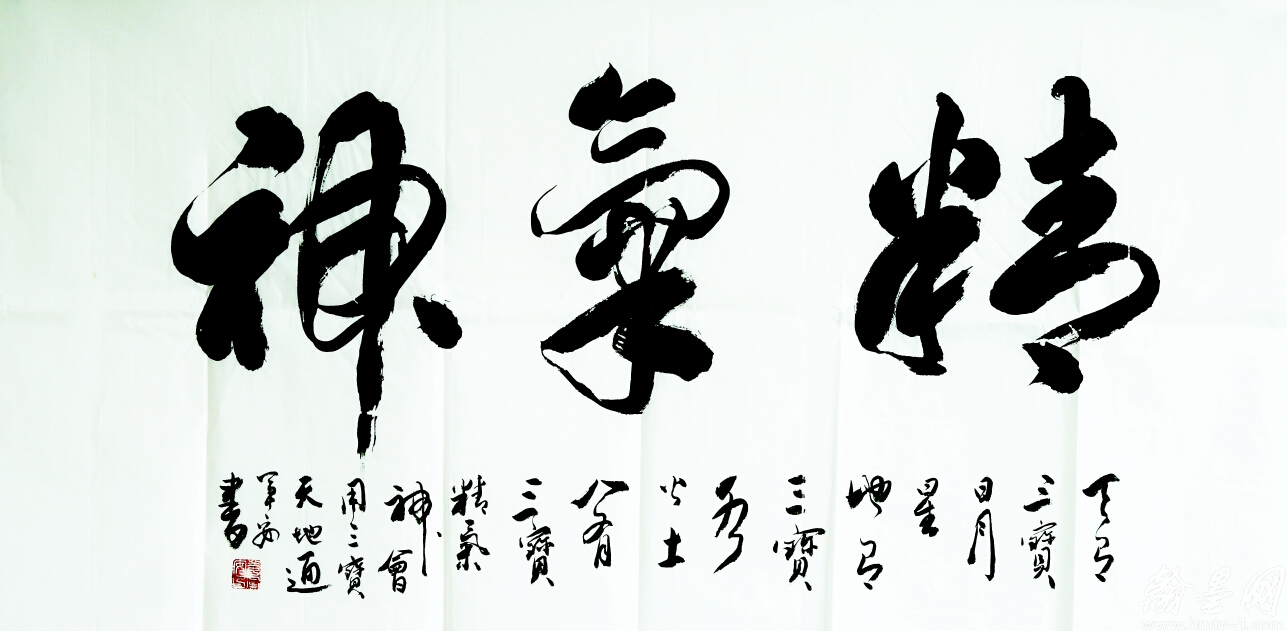 精氣神
天有
三寶
日月
星
地有
三寶
水
火土
人有
三寶
精氣
神會
用三寶
天地通
書
翰墨网